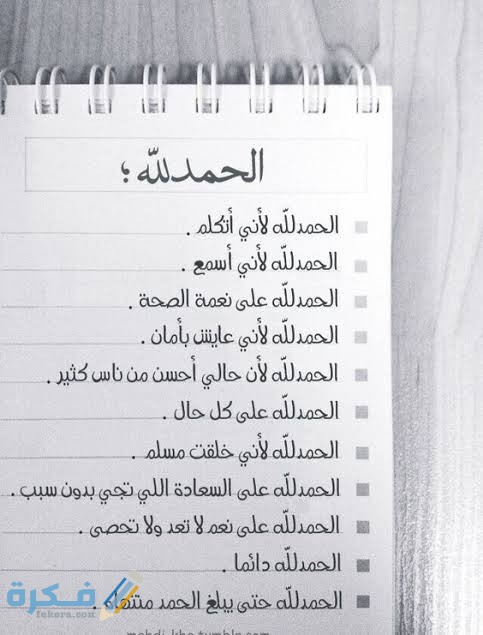 الحمدلله ؛
الحمدلله لأني أتكلم .
الحمدلله لأني أسمع .
الحمدلله على نعمة الصحة .
الحمدلله لأني عايش بأمان .
الحمدلله لأن حالي أحسن من ناس كثير .
الحمدلله على كل حال .
الحمدلله لأني خلقت مسلم .
الحمدلله على السعادة اللي تجي بدون سبب .
الحمدلله على نعم لا تعد ولا تحصى .
الحمدلله دائما .
الحمدلله حتى يبلغ الحمد منتهاه .
فكرة
fekera.com